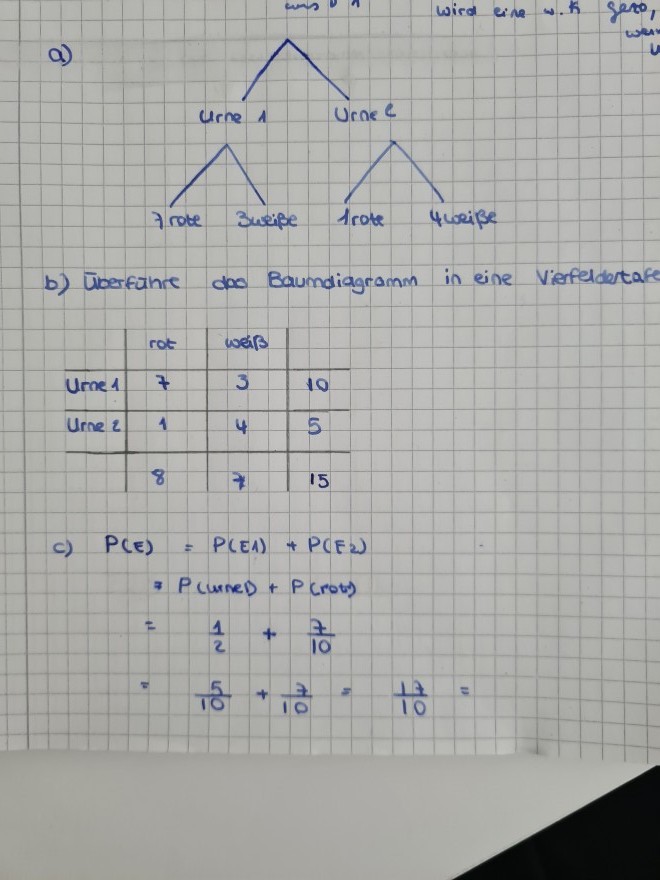 wird eine w. K gezo,
a)
Urne 1 Urne 2
7 rote 3 weiße 1 rote 4 weiße
b) Überführe das Baumdiagramm in eine Vierfeldertafe
rot weiß
Urne 1 7 3 10
Urne 2 1 4 5
8 7 15
c) P(E) = P(E1) + P(E2)
= P(urne1) + P(rot)
= 1/2 + 7/10
= 5/10 + 7/10 = 17/10 =